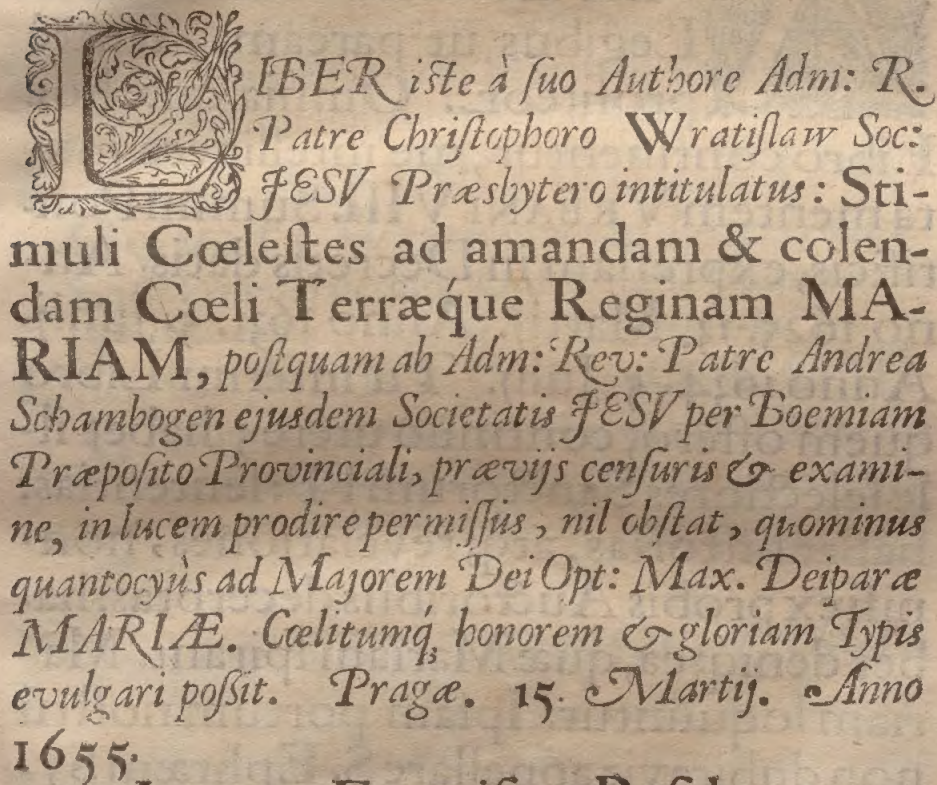 LIBER iste à ſuo Authore Adm: R.
Patre Chriſtophoro Wratiſlaw Soc:
JESV Præsbytero intitulatus: Sti-
muli Cœleſtes ad amandam & colen-
dam Cœli Terræq́ue Reginam MA-
RIAM, poſtquam ab Adm: Rev: Patre Andrea
Schambogen ejusdem Societatis JESV per Boemiam
Præpoſito Provinciali, prævijs cenſuris & exami-
ne, in lucem prodire permiſſus, nil obſtat, quominus
quantocyùs ad Majorem Dei Opt: Max. Deiparæ
MARIÆ. Cœlitumq́; honorem & gloriam Typis
evulgari poſſit. Pragæ. 15. Martij. Anno
1655.